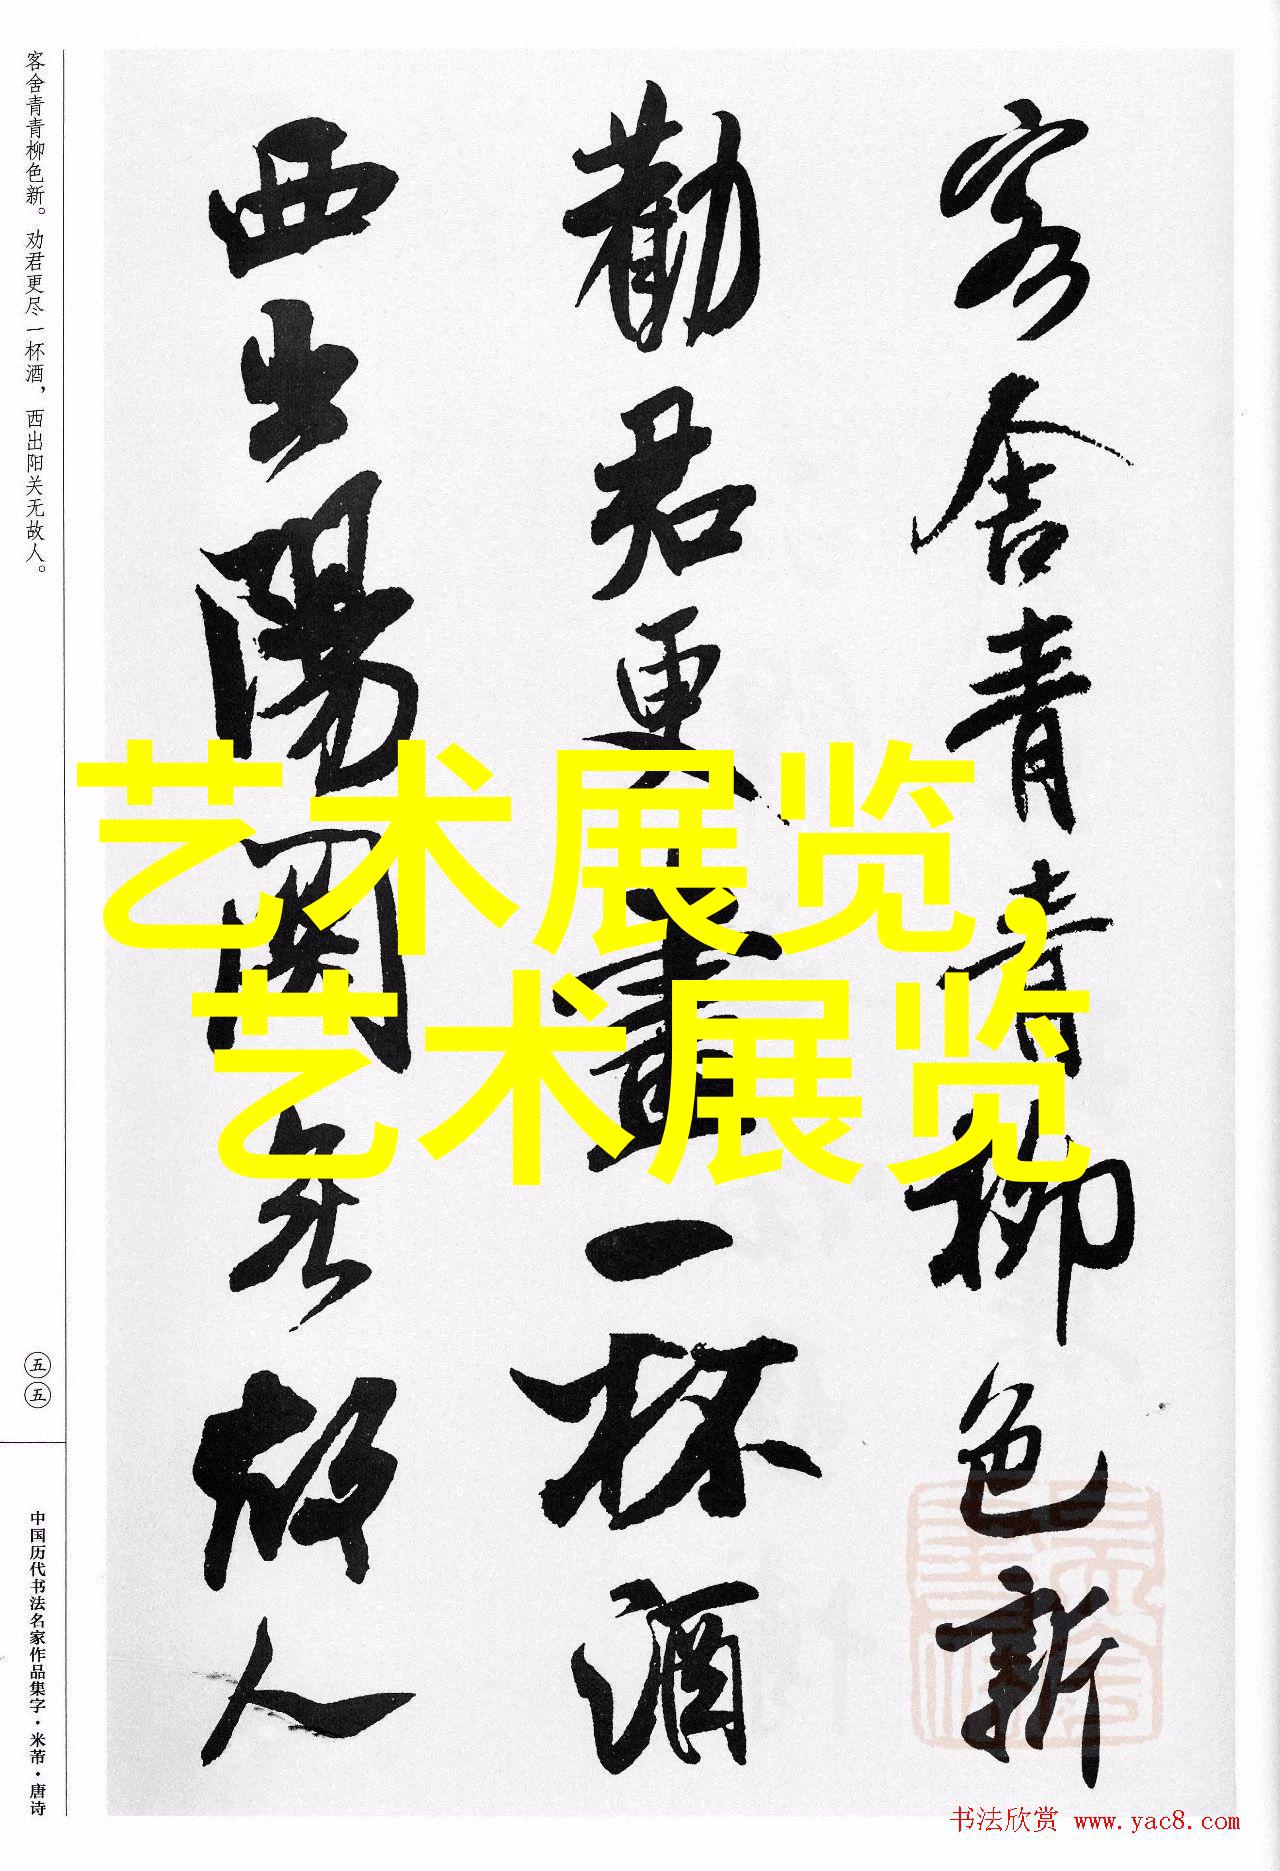 客舍青青柳色新
勸君更盡一杯酒
西出陽關無故人
客舍青青柳色新。劝君更尽一杯酒，西出阳关无故人。
五五
中国历代书法名家作品集字·米芾·唐诗
艺术展览，
艺术展览
书法欣赏 www.yac8.com